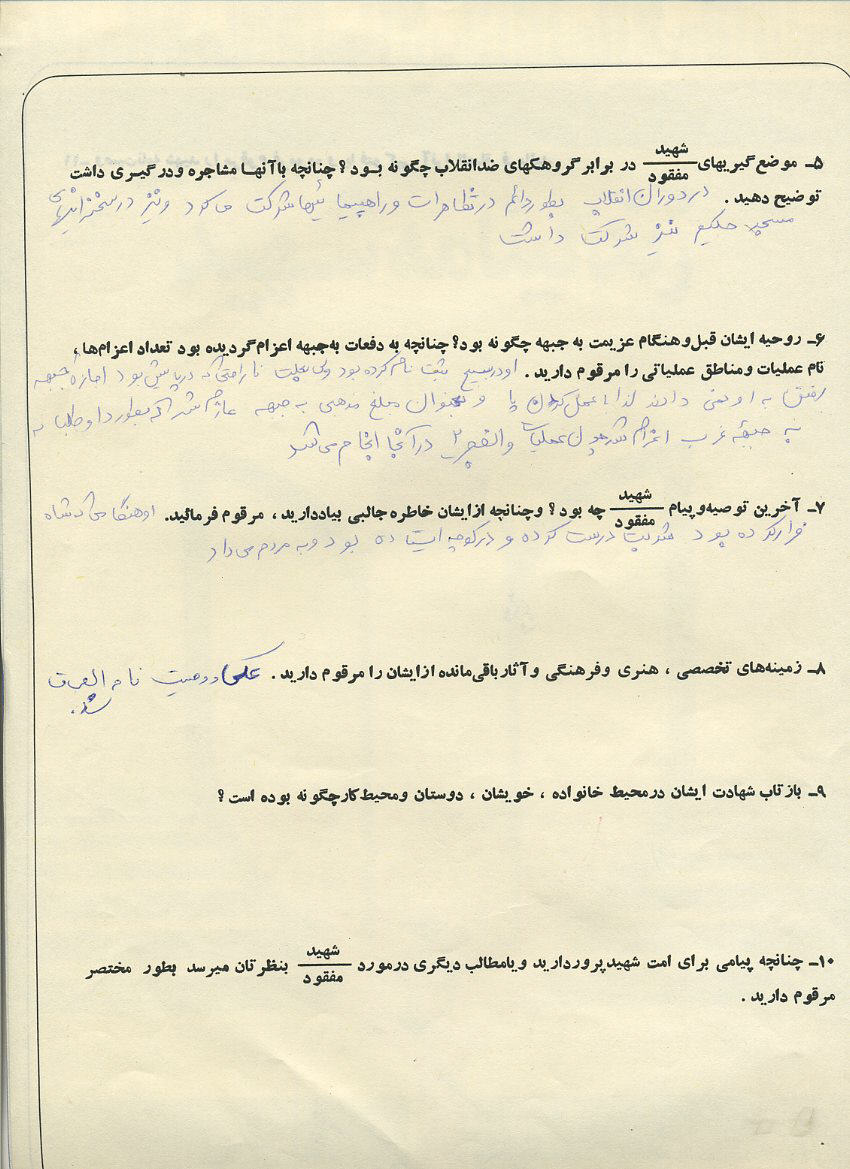 ۵ـ موضع‌گیریهای شهید/مفقود در برابر گروهکهای ضدانقلاب چگونه بود؟ چنانچه باآنها مشاجره ودرگیری داشت
توضیح دهید. در دوران انقلاب بطور دائم در تظاهرات و راهپیمائیها شرکت می‌کرد ونیز در سخنرانیهای
مسجد حکیم نیز شرکت داشت
۶ـ روحیه ایشان قبل وهنگام عزیمت به جبهه چگونه بود؟ چنانچه به دفعات به‌جبهه اعزام‌گردیده بود تعداد اعزام‌ها،
نام عملیات ومناطق عملیاتی را مرقوم دارید. او در بسیج ثبت نام کرده بود ولی بعلت ناراحتی که در پایش بود اجازه جبهه
رفتن به او نمی دادند لذا با عمل کردن پا و بعنوان مبلغ مذهبی به جبهه عازم شد که بطور داوطلبانه
به جبهه غرب اعزام شد چون عملیات والفجر ۲ در آنجا انجام می‌شد
۷ـ آخرین توصیه‌وپیام شهید/مفقود چه بود؟ وچنانچه ازایشان خاطره جالبی بیاددارید، مرقوم فرمائید. او هنگامی که شاه
فرار کرده بود شربت درست کرده و در کوچه ایستاده بود وبه مردم می‌داد
۸ـ زمینه‌های تخصصی، هنری وفرهنگی وآثارباقی‌مانده ازایشان را مرقوم دارید. عکس و وصیت نامه الصاق
شد.
۹ـ بازتاب شهادت ایشان درمحیط خانواده، خویشان، دوستان ومحیط‌کارچگونه بوده است؟
۱۰ـ چنانچه پیامی برای امت شهیدپروردارید ویامطالب دیگری درمورد شهید/مفقود بنظرتان میرسد بطور مختصر
مرقوم دارید.